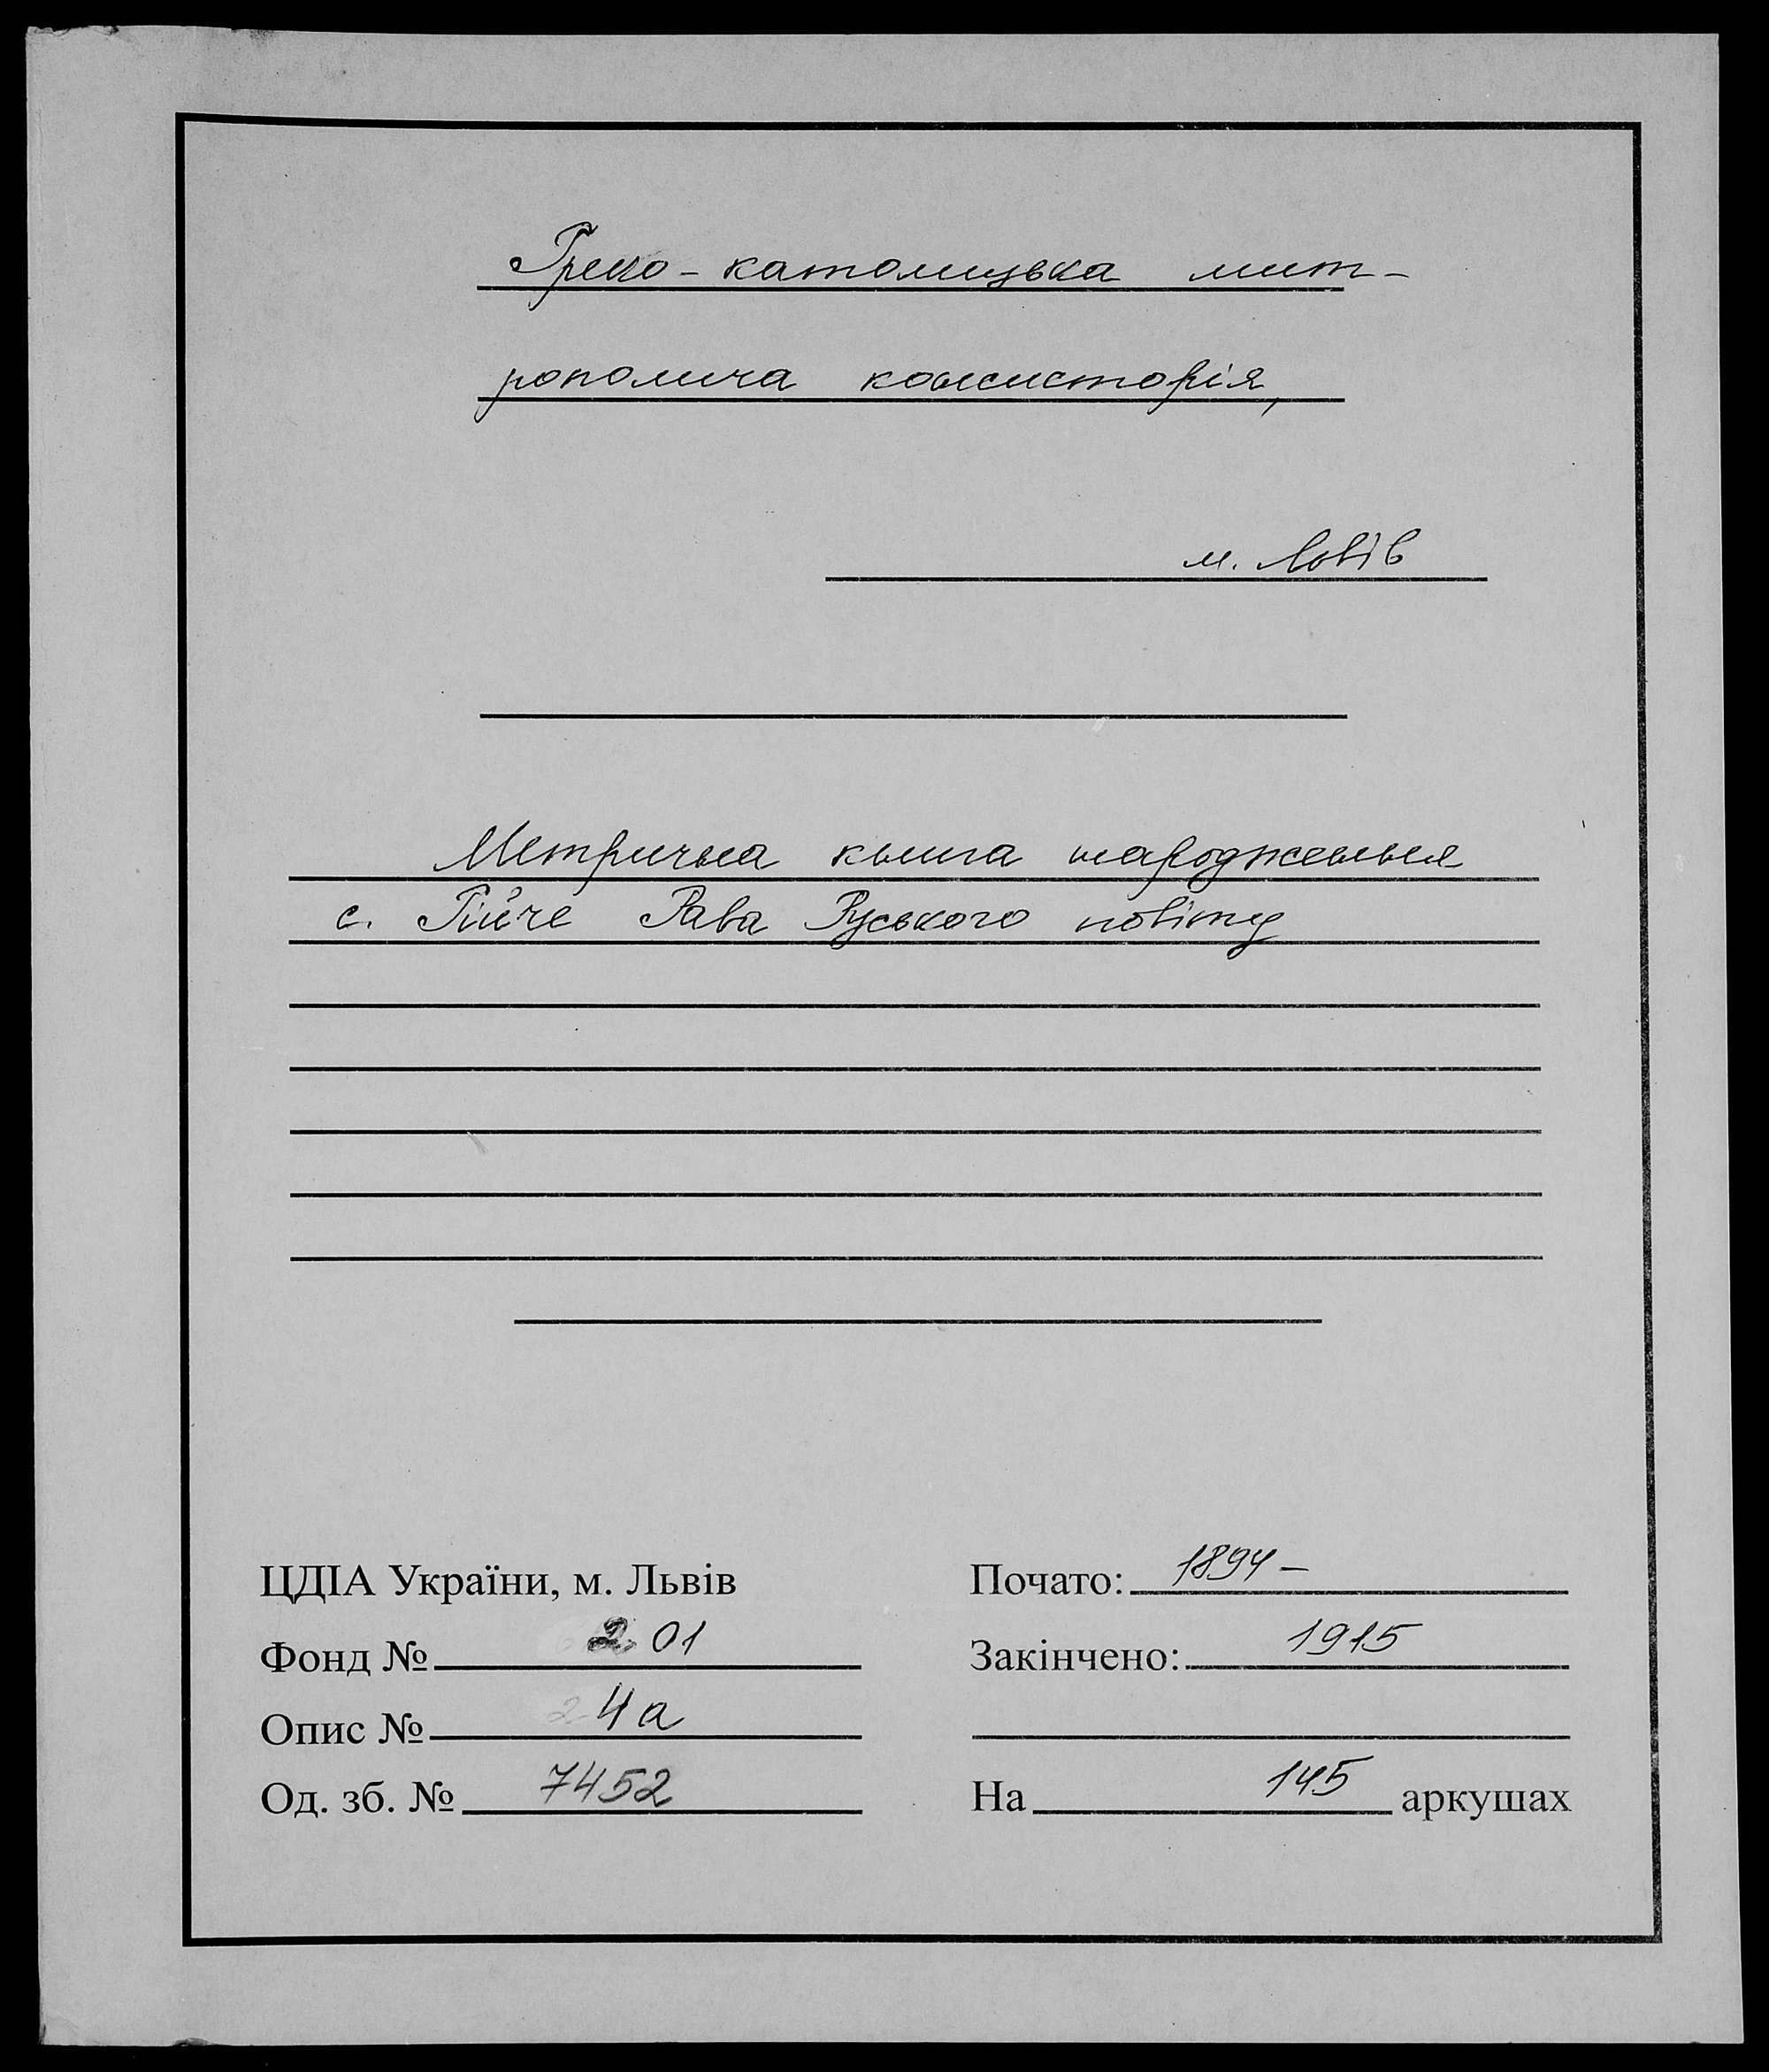 Греко-католицька мит-
рополича консисторія,
м. Львів
Метрична книга народження
с. Гійче Рава Руського повіту
ЦДІА України, м. Львів
Фонд № 201
Опис № 4а
Од. зб. № 7452
Почато: 1894 –
Закінчено: 1915
На 145 аркушах